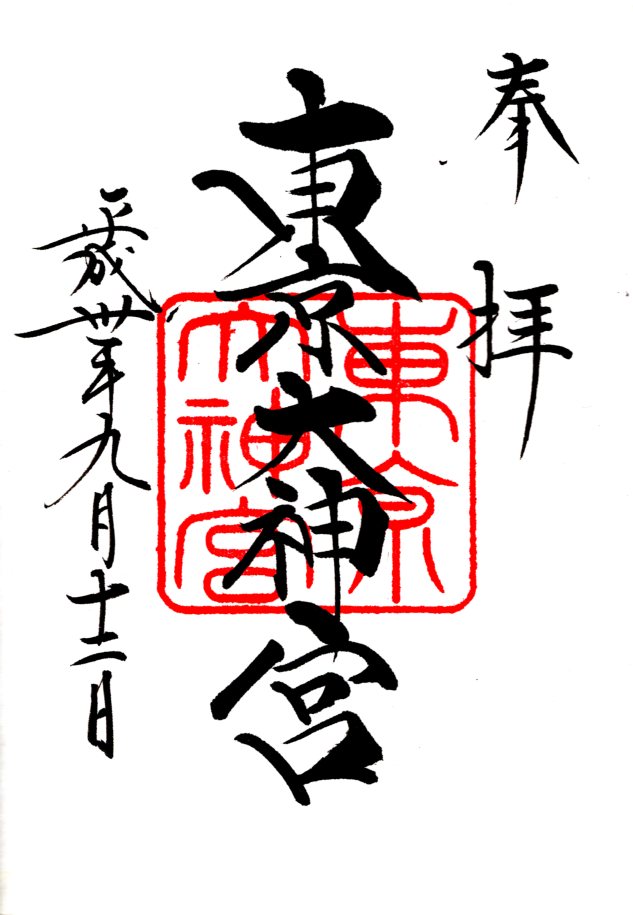 奉拝
東京大神宮
東京大神宮
平成卅年九月十二日